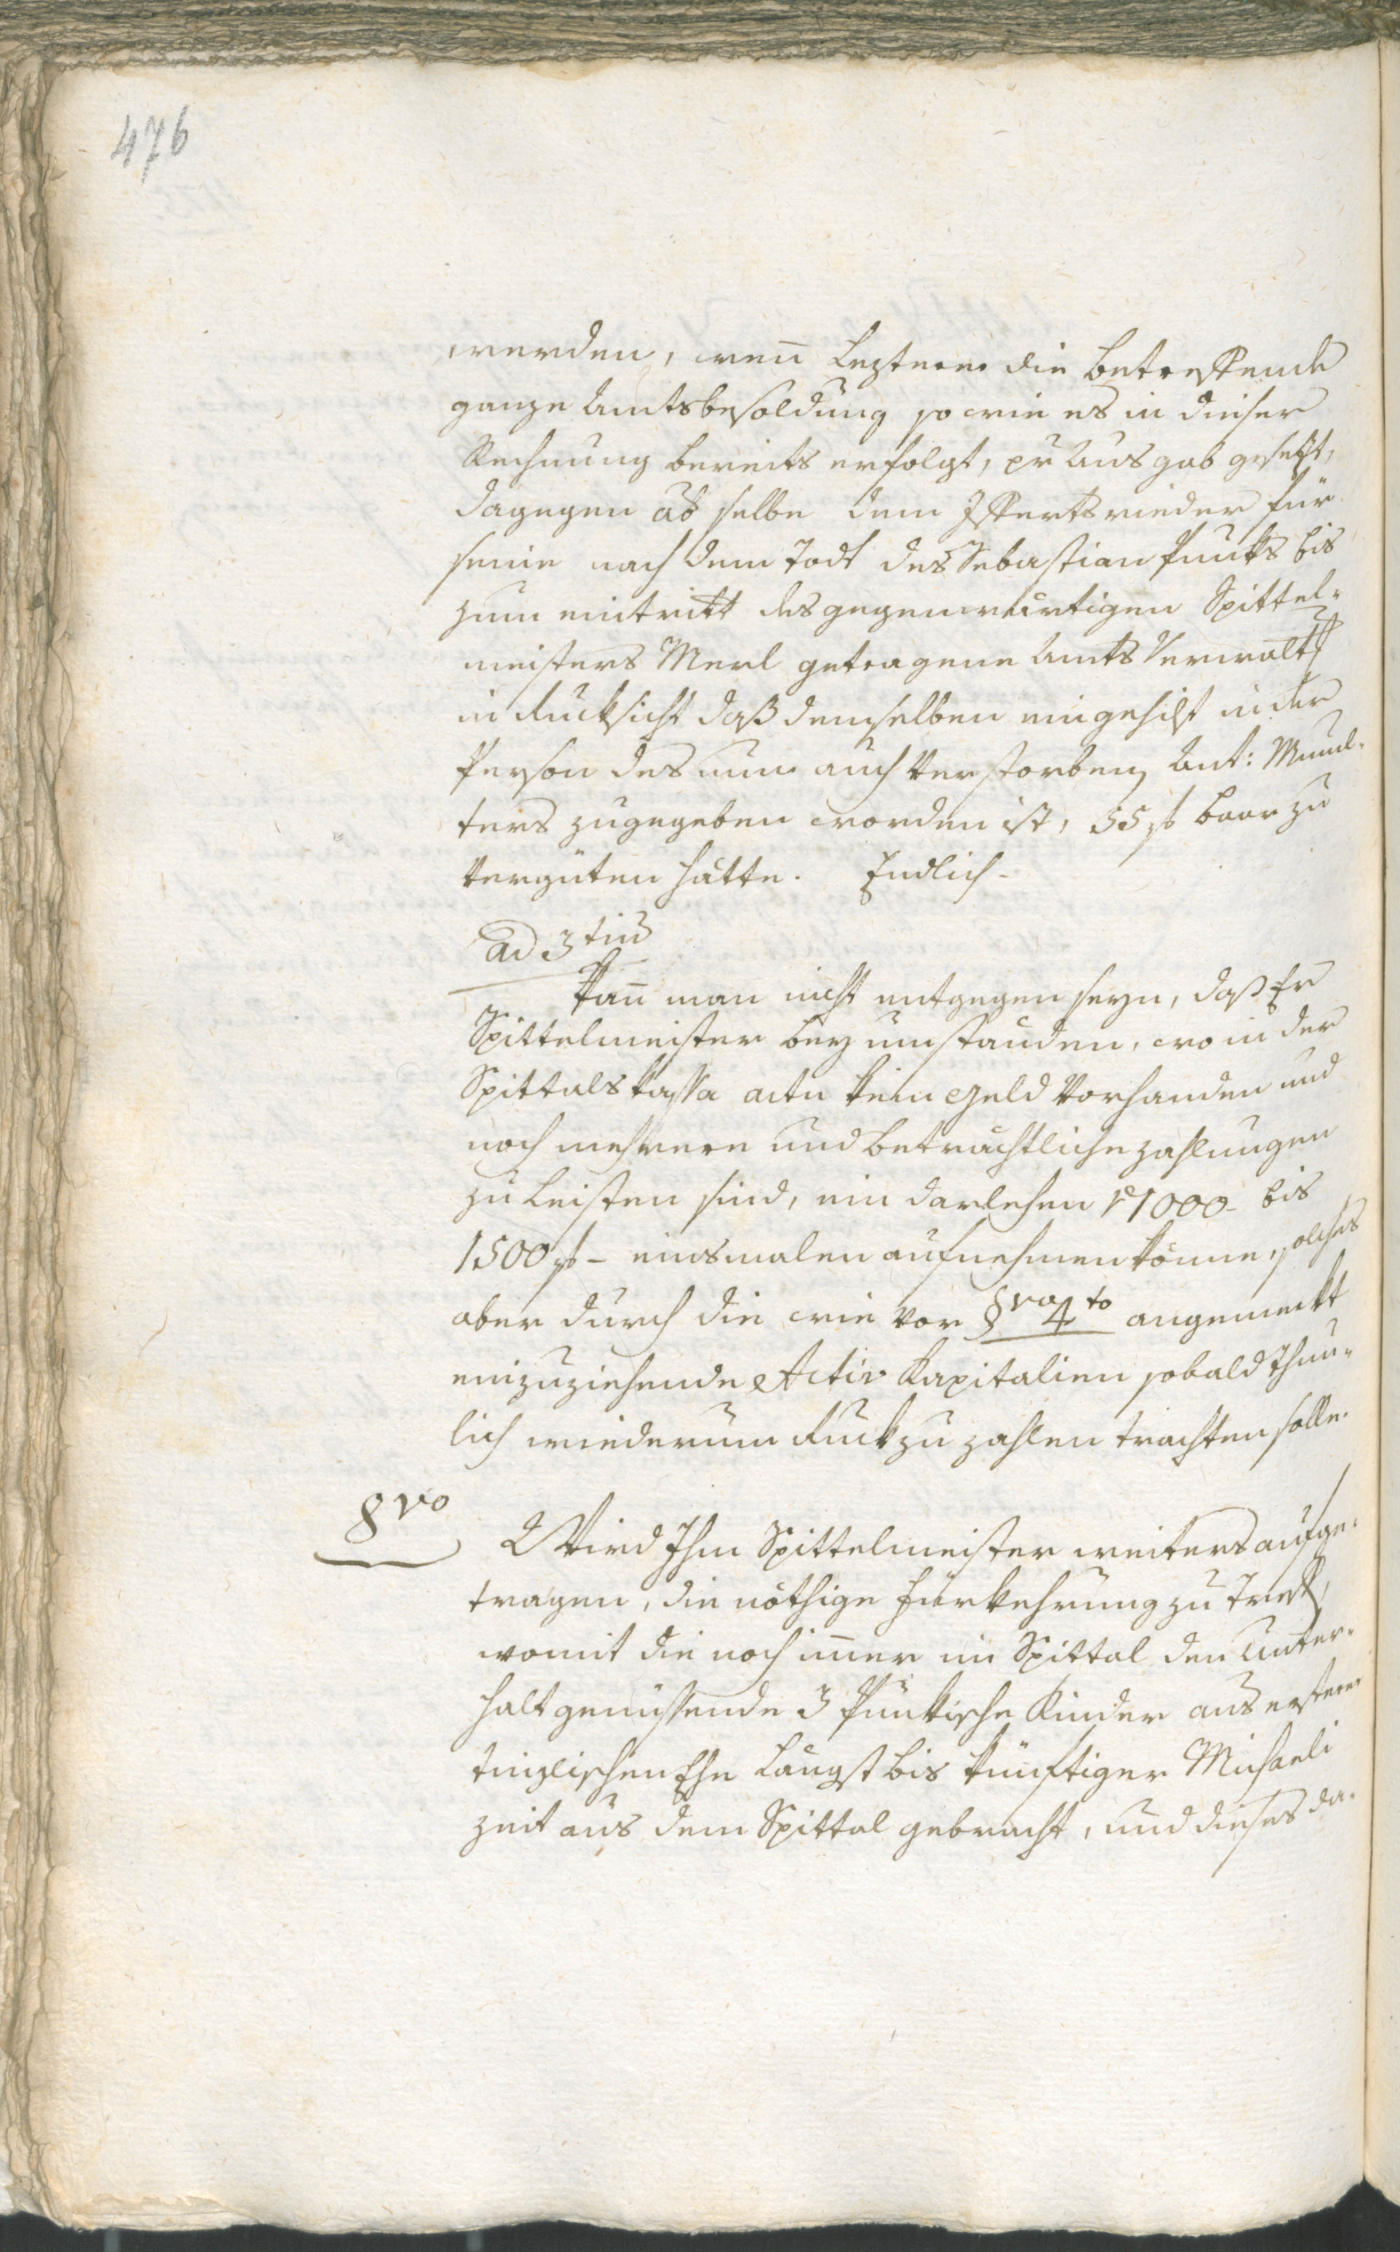 476
werden, weñ Leztere die betreffende
ganze Amtsbesoldung so wie es in dieser
Rechnung bereits erfolgt, pr Ausgab gesetzt,
dagegen aber selbe dem für
seine nach dem Todt des Sebastian Puntks bis
zum eintritt des gegenwärtigen Spittel-
meisters Merl getragene Amts Verwaltg
in Rucksicht daß demselben ein gehilf in der
Person des nun auch Verstorbenen Ant: Mumel-
ters zugegeben worden ist, 55 f baar zu
Vergüten hätte. Endlich-
ad 3tiu
Kañ man nicht entgegen seyn, daß Er
Spittelmeister bey umständen, wo in der
Spittals Kassa actu kein Geld Vorhanden und
noch mehrere und beträchtliche zahlungen
zu Leisten sind, ein darlehen pr 1000- bis
1500 f- einsmalen aufnehmen könne, solches
aber durch die wie vor §vo 4to angemerkt
einzuziehende Activ Kapitalien sobald thun-
lich wiederum Ruck zu zahlen trachten solle.
8vo
Wird Ihm Spittelmeister weiters aufge-
tragen, die nöthige Fürkehrung zu Treff,
womit die noch iṁer im Spittal den Unter-
halt genüssende 3 Puntkische Kinder aus erstere
Ehe Längst bis künftiger Michaeli
zeit aus dem Spittal gebracht, und dieses da-